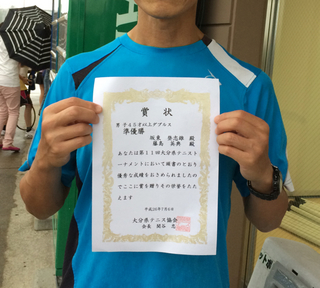 賞状
男子45才以上ダブルス
準優勝
殿
藤島 英典 殿
あなたは第11回大分県テニスト
ーナメントにおいて頭書のとおり
優秀な成績をおさめられましたの
でここに賞を贈りその栄誉をたた
えます
大分県テニス協会
会長